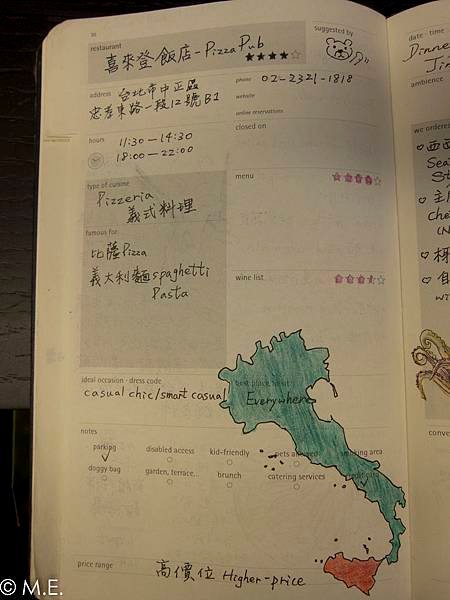 restaurant
喜來登飯店-Pizza Pub
suggested by
address
台北市中正區
忠孝東路一段12號B1
phone
02-2321-1818
website
online reservations
hours
11:30-14:30
18:00-22:00
closed on
type of cuisine
Pizzeria
義式料理
menu
famous for
比薩Pizza
義大利麵spaghetti
Pasta
wine list
ideal occasion · dress code
casual chic/smart casual
best place to sit
Everywhere
notes
parking
disabled access
kid-friendly
pets allowed
smoking area
doggy bag
garden, terrace...
brunch
catering services
credit card
price range
高價位 Higher-price
date · time
Dinne
Jin
ambience
we ordered
Sea
St
che
(N
wi
conve
© M.E.